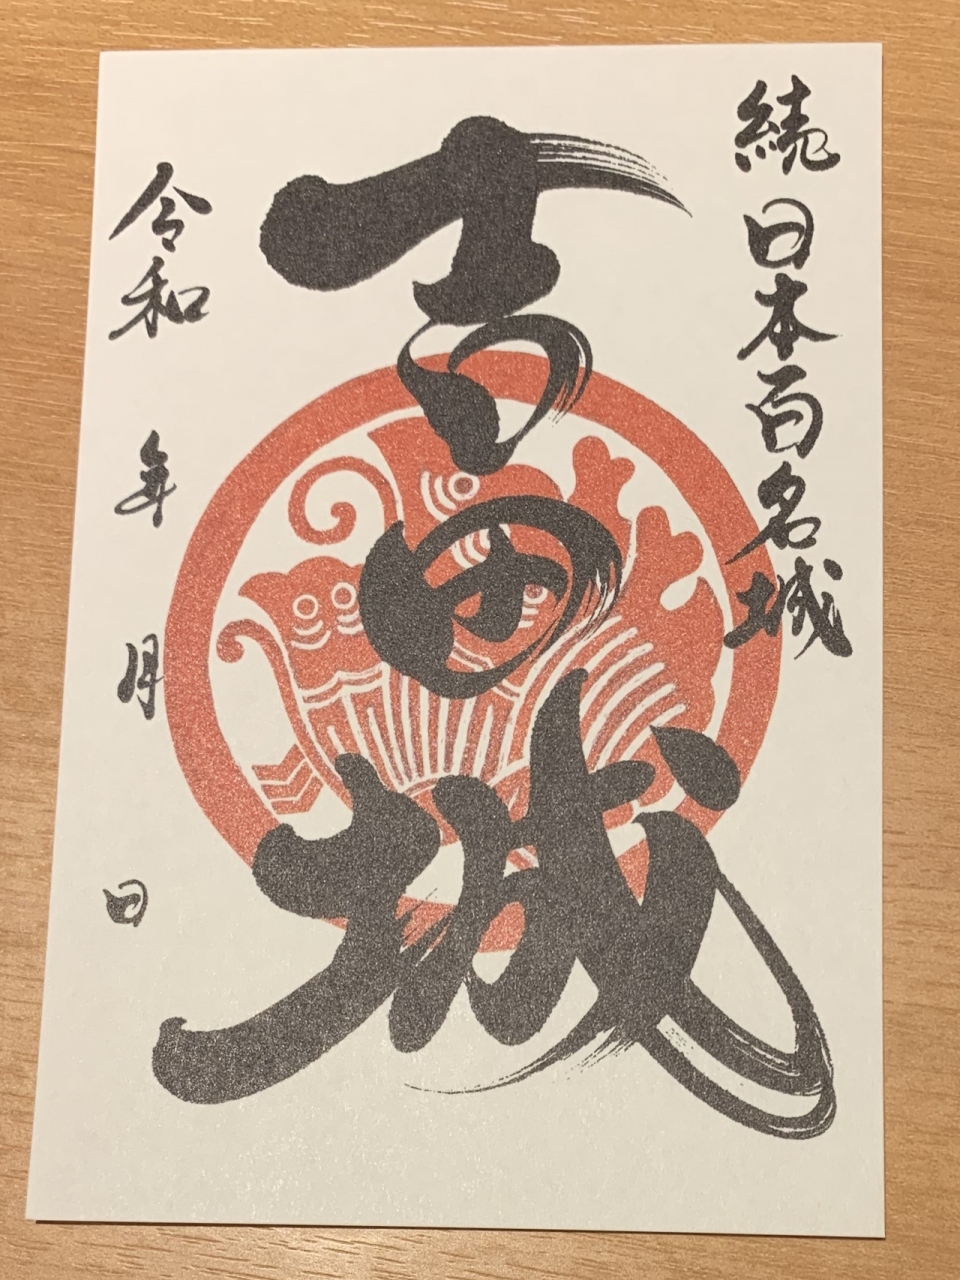 続日本百名城
吉田城
令和 年 月 日